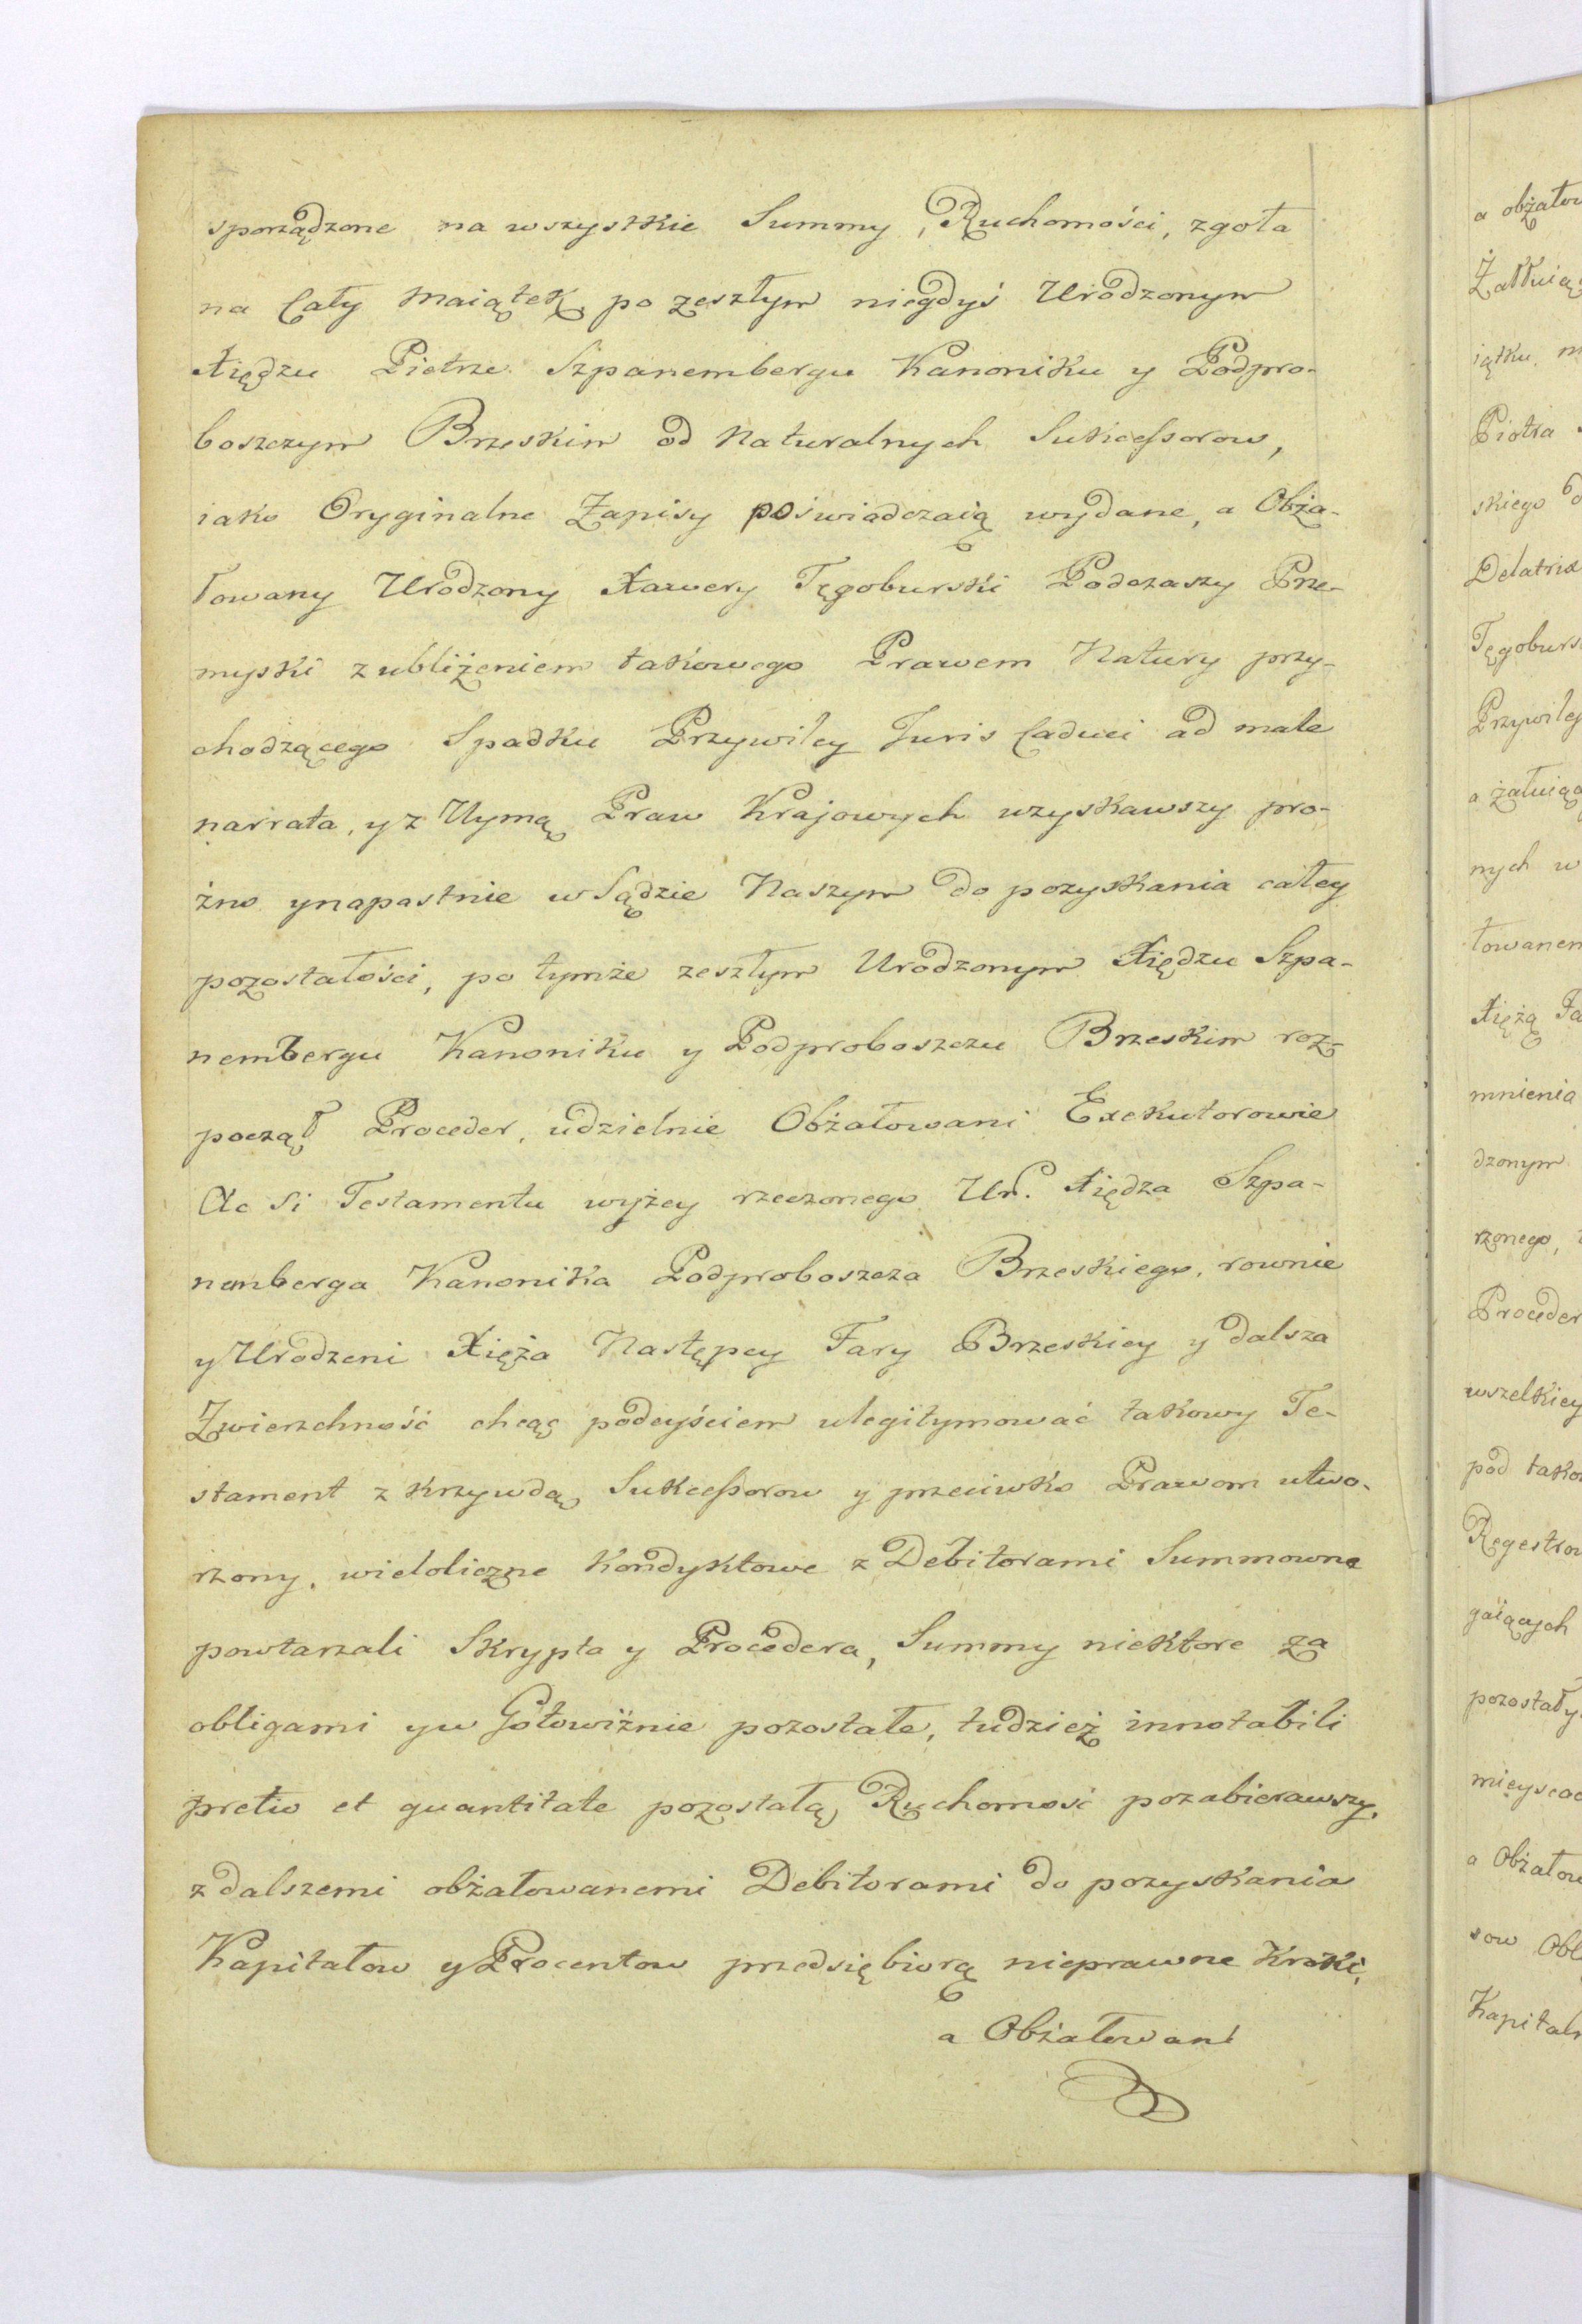 sporządzone na wszystkie Summy, Ruchomości, zgoła
na Cały Maiątek po zeszłym niegdyś Urodzonym
Xiędzu Pietrze Szpanembergu Kanoniku y Podpro-
boszczym Brzeskim od Naturalnych Sukcessorow,
iako Oryginalne Zapisy poświadczaią wydane, a Obża-
łowany Urodzony Xawery Tęgoburski Podczaszy Prze-
myski z ubliżeniem takowego Prawem Natury przy-
chodzącego Spadku Przywiley Juris Caduci ad male
narrata, y z Uymą Praw Krajowych uzyskawszy pro-
żno y napastnie w Sądzie Naszym do pozyskania całey
pozostałości, po tymże zeszłym Urodzonym Xiędzu Szpa-
nembergu Kanoniku y Podproboszczu Brzeskim roz-
począł Proceder, udzielnie Obżałowani Exekutorowie
Ac Si Testamentu wyżey rzeczonego Ur. Xiędza Szpa-
nemberga Kanonika Podproboszcza Brzeskiego, rownie
y Urodzeni Xięża Następcy Fary Brzeskiey y dalsza
Zwierzchność chcąc podeyściem ulegitymować takowy Te-
stament z krzywdą Sukcessorow y przeciwko Prawom utwo-
rzony, wieloliczne Kondyktowe z Debitorami Summowne
powtarzali Skrypta y Procedera, Summy niektore za
obligami y w Gotowiźnie pozostałe, tudzież innotabili
pretio et quantitate pozostałą Ruchomość pozabierawszy,
z dalszemi obżałowanemi Debitorami do pozyskania
Kapitałow y Procentow przedsiębiorą nieprawne Kroki,
a Obżałowani
a obżałow
iątku
Piotra
skiego
Delatrix
Tęgoburs
Przywiley
nych w
łowanem
Xiężą Fa
mnienia
dzonym
rzonego,
Proceder
wszelkiey
pod tako
Regestrow
gaiących
pozostały
mieyscac
a Obżałow
sow Obl
Kapitał